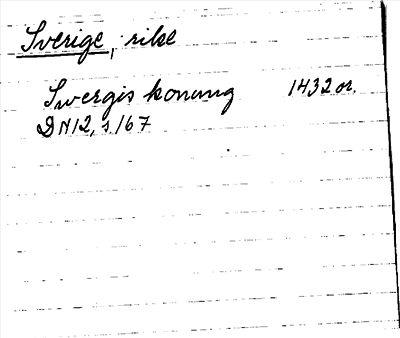 Sverige, rike
Swergis konung 1432 or.
DN 12, s. 167